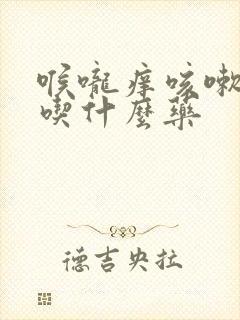 喉嚨痒咳嗽
喫什麼藥
德吉央拉